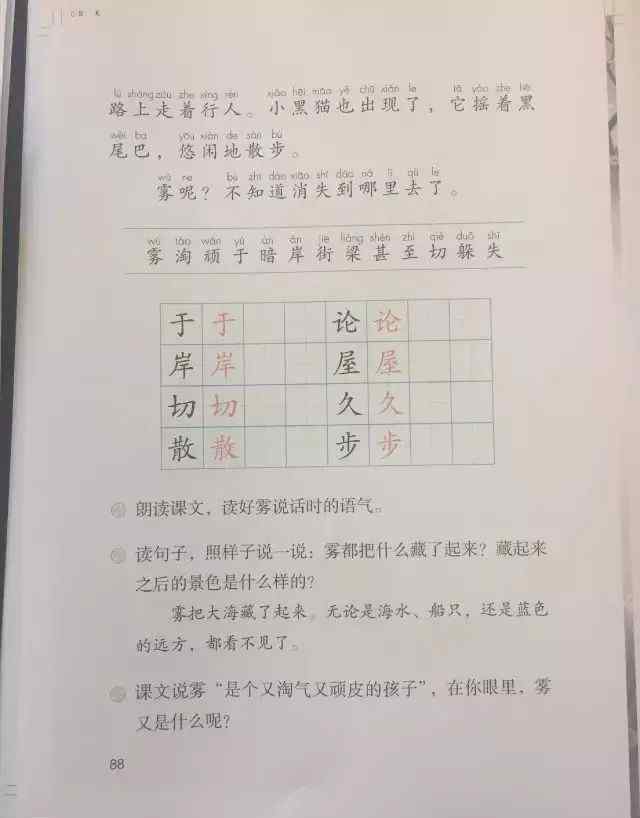 lù shàng zǒu zhe xíng rén xiǎo hēi māo yě chū xiàn le tā yáo zhe hēi
路上走着行人。小黑猫也出现了，它摇着黑
wěi ba yōu xián de sàn bù
尾巴，悠闲地散步。
wù ne bù zhī dào xiāo shī dào nǎ lǐ qù le
雾呢？不知道消失到哪里去了。
wù táo wán yú àn àn jiē liáng shèn zhì qiè duǒ shī
雾淘顽于暗岸街梁甚至切躲失
于 于 论 论
岸 岸 屋 屋
切 切 久 久
散 散 步 步
朗读课文，读好雾说话时的语气。
读句子，照样子说一说：雾都把什么藏了起来？藏起来
之后的景色是什么样的？
雾把大海藏了起来。无论是海水、船只，还是蓝色
的远方，都看不见了。
课文说雾“是个又淘气又顽皮的孩子”，在你眼里，雾
又是什么呢？
88